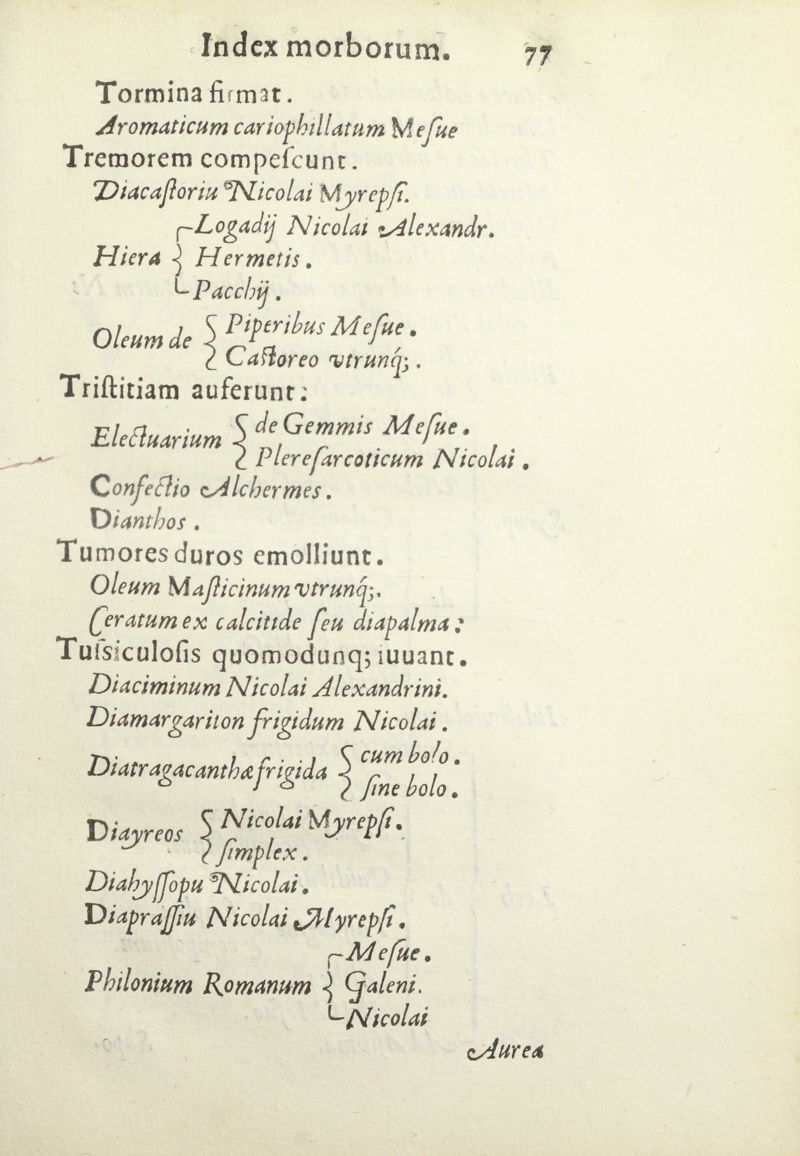 Index morborum. 77
Tormina firmat.
Aromaticum cariophillatum Meſue
Tremorem compeſcunt.
Diacaſtoriu Nicolai Myrepſi.
Logadij Nicolai Alexandr.
Hiera Hermetis.
Pacchij.
Oleum de Piperibus Meſue.
Caſtoreo vtrunq́;.
Triſtitiam auferunt:
Electuarium de Gemmis Meſue.
Plereſarcoticum Nicolai.
Confectio Alchermes.
Dianthos.
Tumores duros emolliunt.
Oleum Maſticinum vtrunq́;.
Ceratum ex calcitide ſeu diapalma:
Tuſsiculoſis quomodunq; iuuant.
Diaciminum Nicolai Alexandrini.
Diamargariton frigidum Nicolai.
Diatragacanthæ frigida cum bolo.
ſine bolo.
Diayreos Nicolai Myrepſi.
ſimplex.
Diahyſſopu Nicolai.
Diapraſſiu Nicolai Myrepſi.
Meſue.
Philonium Romanum Galeni.
Nicolai
Aurea